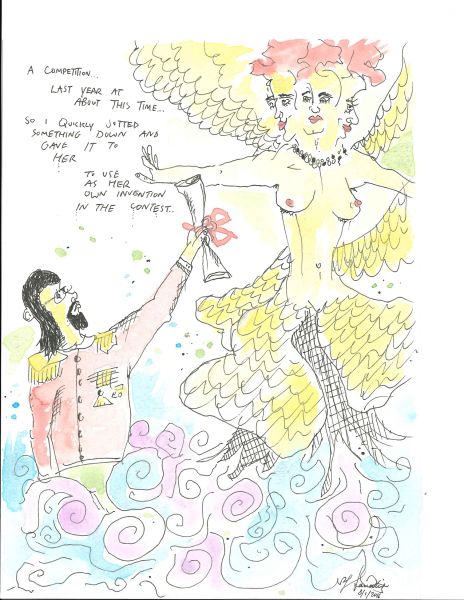 A COMPETITION...
LAST YEAR AT
ABOUT THIS TIME...
SO I QUICKLY JOTTED
SOMETHING DOWN AND
GAVE IT TO
HER
TO USE
AS HER
OWN INVENTION
IN THE CONTEST..